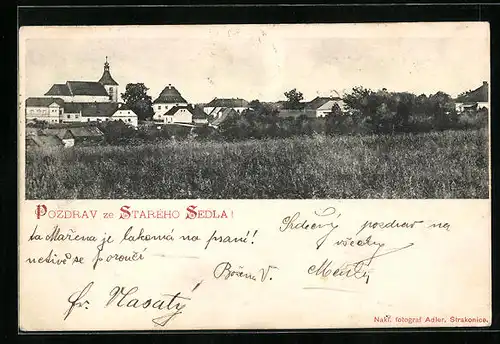 POZDRAV ze STARÉHO SEDLA!
ta Mařena je lakomá na psaní!
se poroučí
Srdečný pozdrav na
všecky
Božena V.
fr. Vlasatý
Nakl. fotograf Adler, Strakonice.